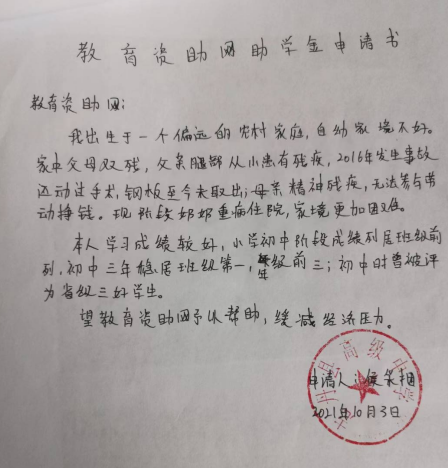 教育资助网助学金申请书
教育资助网:
我出生于一个偏远的农村家庭,自幼家境不好。
家中父母双残,父亲腿部从小患有残疾,2016年发生事故
还动过手术,钢板至今未取出;母亲精神残疾,无法参与劳
动挣钱。现阶段奶奶重病住院,家境更加困难。
本人学习成绩较好,小学初中阶段成绩列居班级前
列,初中三年稳居班级第一,年级前三;初中时曾被评
为省级三好学生。
望教育资助网予以帮助,缓减经济压力。
申请人:
2021年10月3日
高级中学